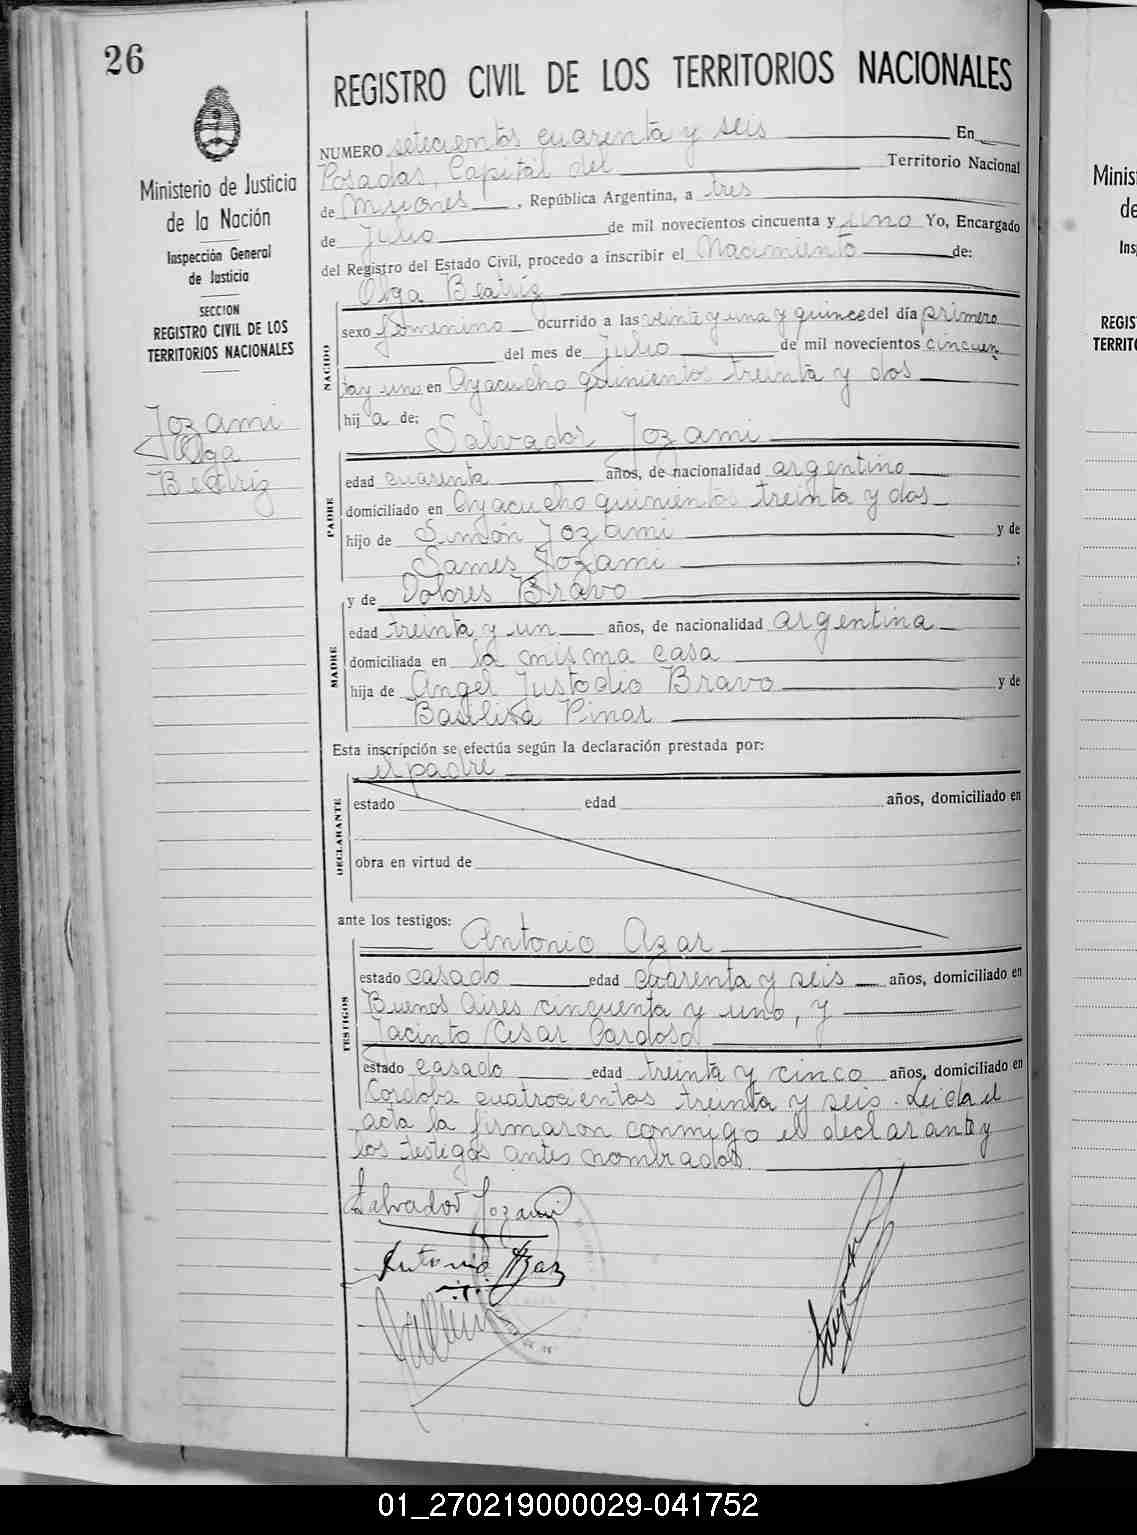 26
REGISTRO CIVIL DE LOS TERRITORIOS NACIONALES
Ministerio de Justicia
de la Nación
Inspección General
de Justicia
SECCION
REGISTRO CIVIL DE LOS
TERRITORIOS NACIONALES
Jozami
Olga
Beatriz
NUMERO setecientos cuarenta y seis En
Posadas, Capital del Territorio Nacional
de Misiones, República Argentina, a tres
de Julio de mil novecientos cincuenta y uno Yo, Encargado
del Registro del Estado Civil, procedo a inscribir el Nacimiento de:
Olga Beatriz
NACIDO
sexo femenino ocurrido a las veinte y una y quince del día primero
del mes de Julio de mil novecientos cincuen
ta y uno en Ayacucho quinientos treinta y dos
hij a de: Salvador Jozami
PADRE
edad cuarenta años, de nacionalidad argentino
domiciliado en Ayacucho quinientos treinta y dos
hijo de Simón Jozami y de
Sames Jozami :
y de Dolores Bravo
MADRE
edad treinta y un años, de nacionalidad argentina
domiciliada en la misma casa
hija de Angel Justodio Bravo y de
Basilisa Pinar
Esta inscripción se efectúa según la declaración prestada por:
el padre
DECLARANTE
estado edad años, domiciliado en
obra en virtud de
ante los testigos: Antonio Azar
TESTIGOS
estado casado edad cuarenta y seis años, domiciliado en
Buenos Aires cincuenta y uno, y
Jacinto Cesar Cardoso
estado casado edad treinta y cinco años, domiciliado en
Córdoba cuatrocientos treinta y seis. Leida el
acta la firmaron conmigo el declarante y
los testigos antes nombrados.
Salvador Jozami
Antonio Azar
Minis
de
Ins
REGIS
TERRITO
01_270219000029-041752